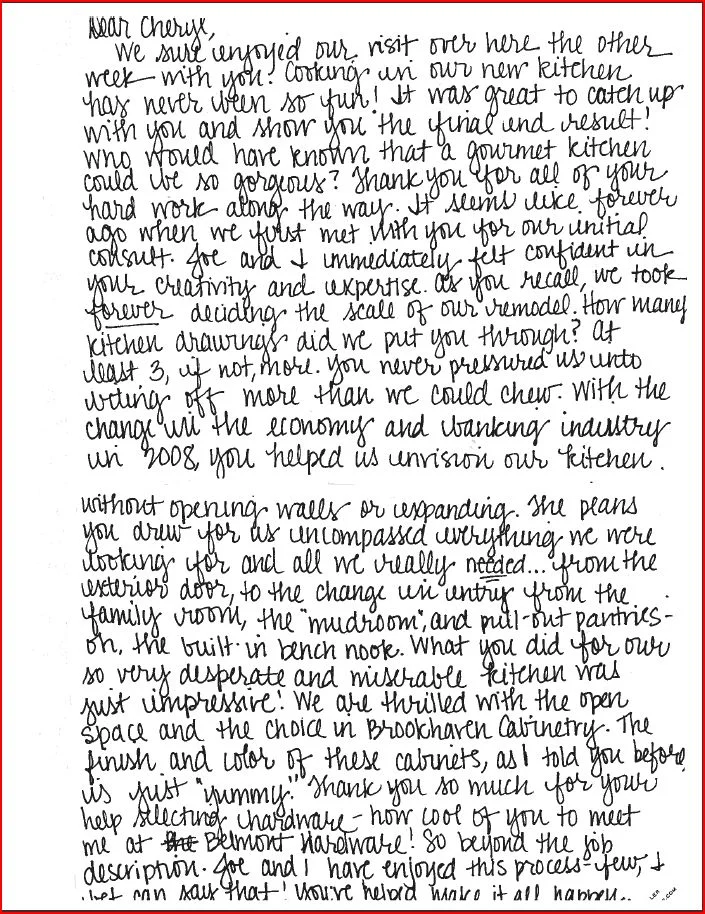 Dear Cheryl,
We sure enjoyed our visit over here the other
week with you! Cooking in our new kitchen
has never been so fun! It was great to catch up
with you and show you the final end result!
Who would have known that a gourmet kitchen
could be so gorgeous? Thank you for all of your
hard work along the way. It seems like forever
ago when we first met with you for our initial
consult. Joe and I immediately felt confident in
your creativity and expertise. As you recall, we took
forever deciding the scale of our remodel. How many
kitchen drawings did we put you through? At
least 3, if not, more. You never pressured us into
biting off more than we could chew. With the
change in the economy and banking industry
in 2008, you helped us envision our kitchen.
without opening walls or expanding. The plans
you drew for us encompassed everything we were
looking for and all we really needed... from the
exterior door, to the change in entry from the
family room, the "mudroom", and pull-out pantries-
oh, the built-in bench nook. What you did for our
so very desperate and miserable kitchen was
just impressive! We are thrilled with the open
space and the choice in Brookhaven Cabinetry. The
finish and color of these cabinets, as I told you before,
is just "yummy." Thank you so much for your
help selecting hardware - how cool of you to meet
me at the Belmont Hardware! So beyond the job
description. Joe and I have enjoyed this process - few, I
bet can say that! You've helped make it all happen..